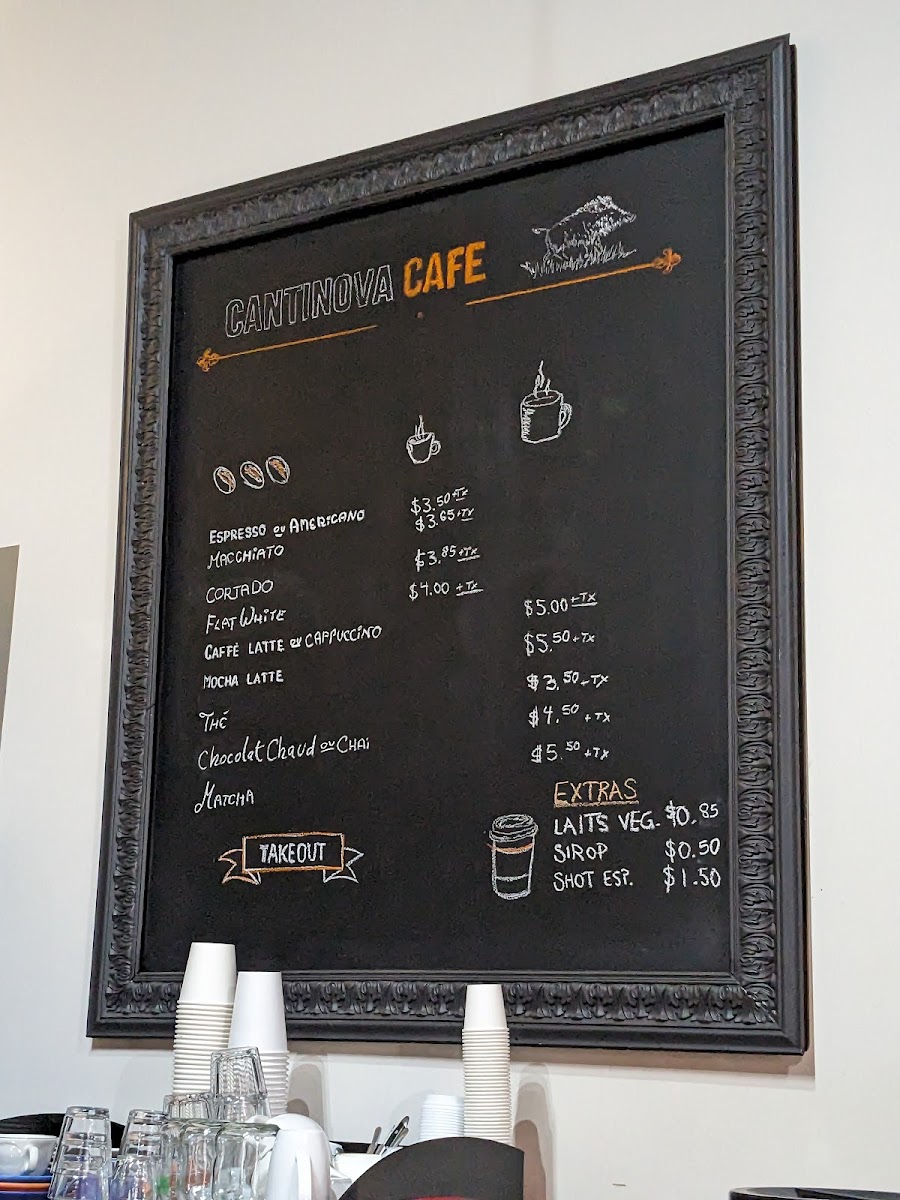 CANTINOVA CAFE
ESPRESSO OU AMERICANO $3.50+TX
MACCHIATO $3.65+TX
CORTADO $3.85+TX
FLAT WHITE $4.00+TX
CAFFÉ LATTE OU CAPPUCCINO $5.00+TX
MOCHA LATTE $5.50+TX
THÉ $3.50+TX
Chocolat Chaud ou CHAI $4.50+TX
MATCHA $5.50+TX
EXTRAS
LAITS VEG. $0.85
SIROP $0.50
SHOT ESP. $1.50
TAKEOUT